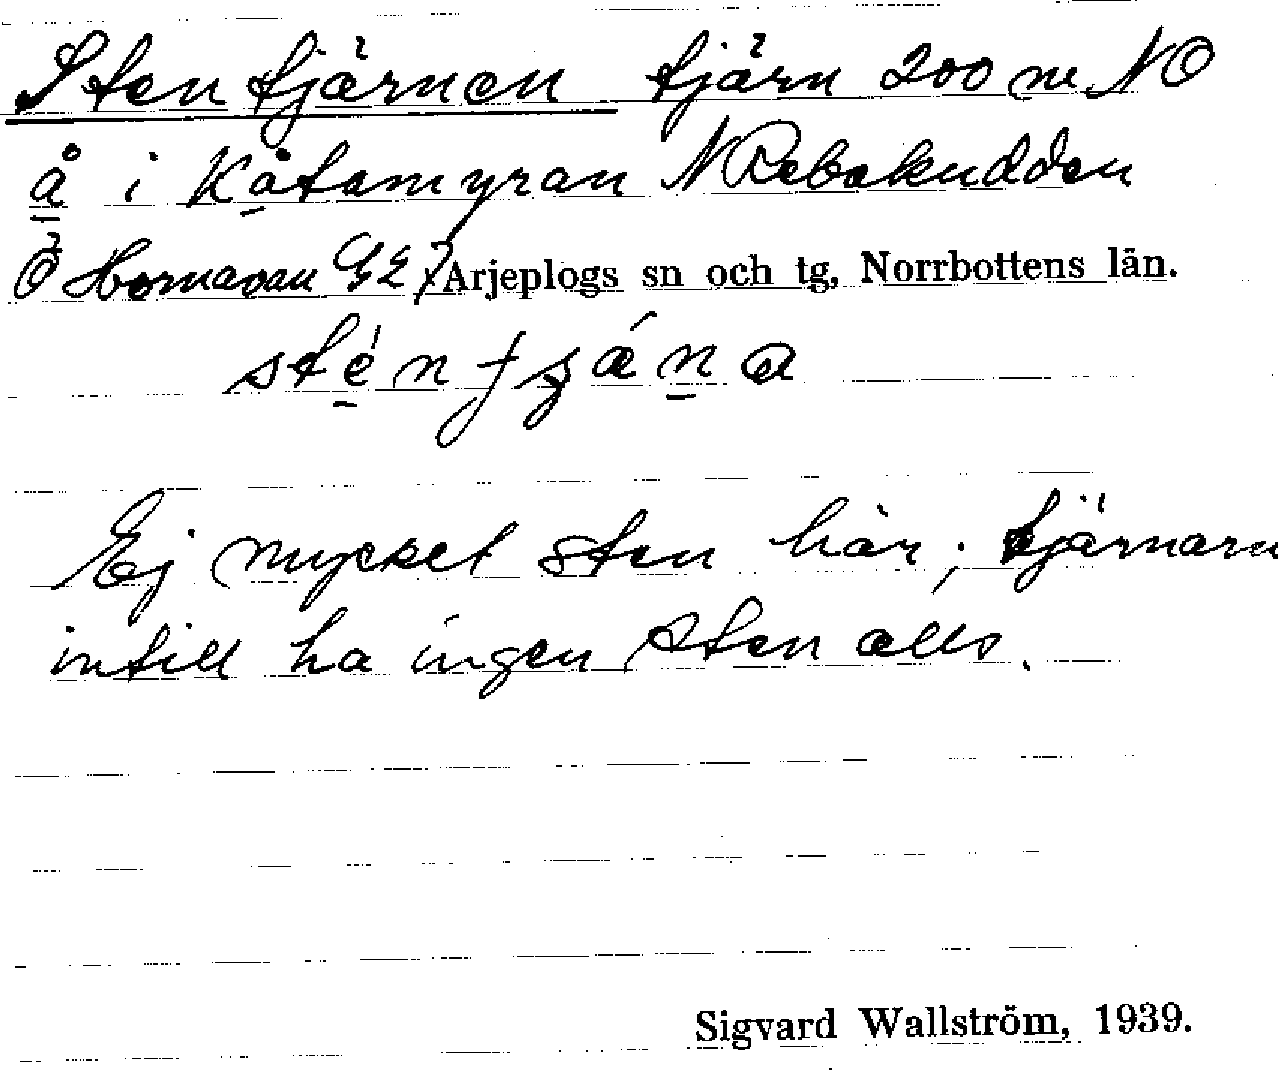 Stentjärnen tjärn 200 m NO
å i Kåtamyran N Rebakudden
Ö Hornavan G2 Arjeplogs sn och tg, Norrbottens län.
Ej mycket sten här; tjärnarn
intill ha ingen sten alls.
Sigvard Wallström, 1939.